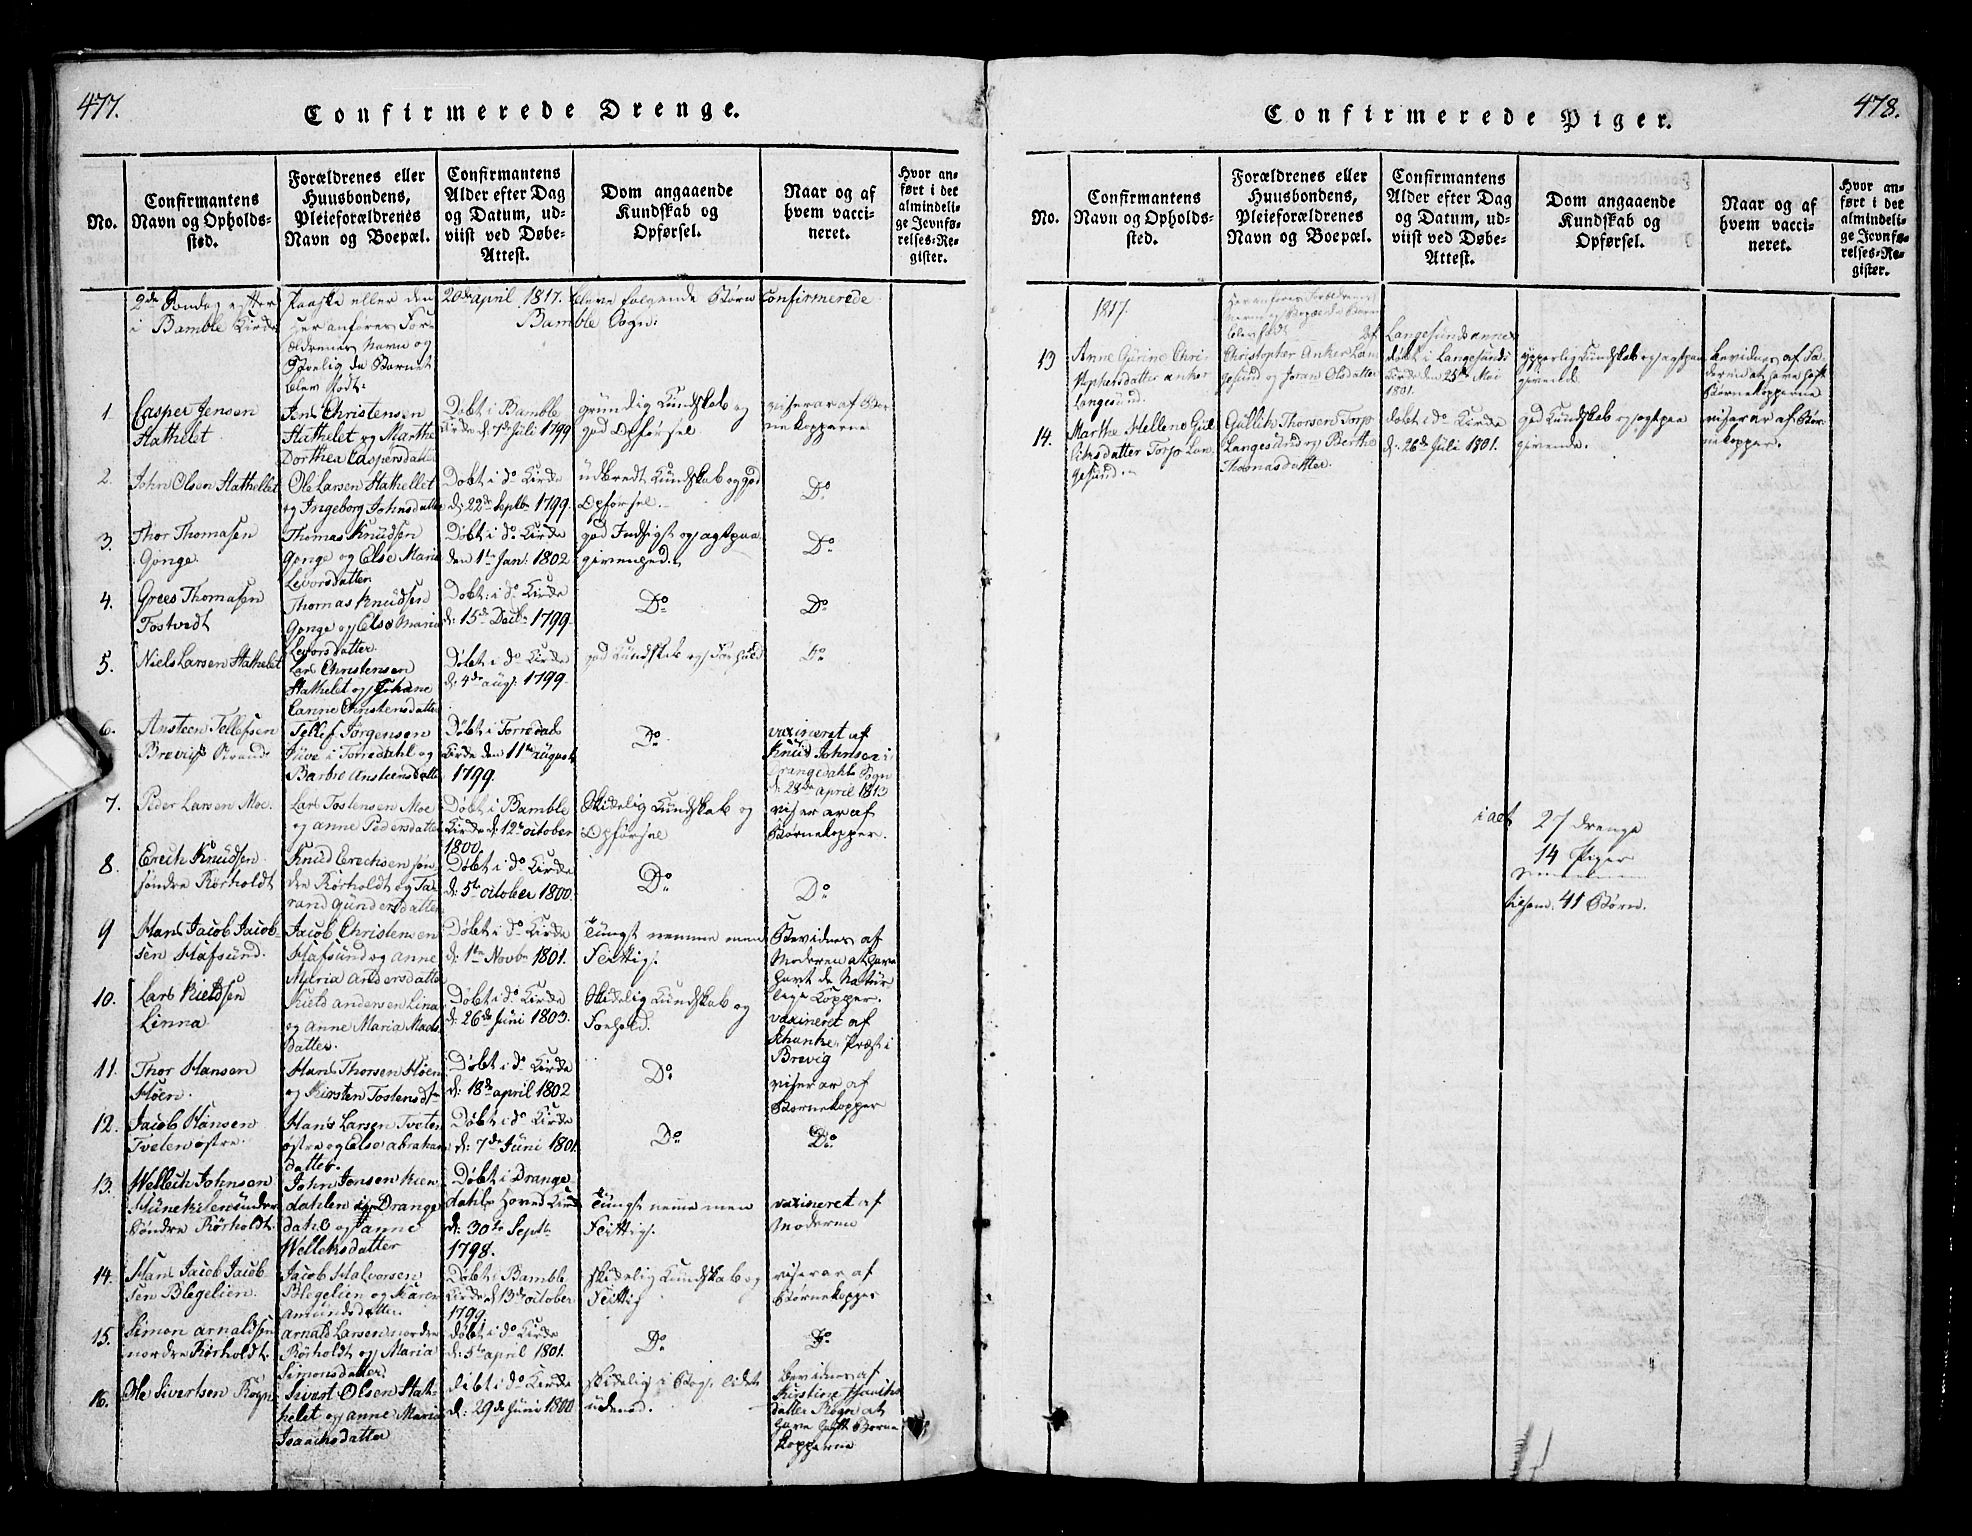 477.
Confirmerede Drenge.
No.
Confirmantens
Navn og Opholds-
sted.
Forældrenes eller
Huusbondens,
Pleieforældrenes
Navn og Boepæl.
Confirmantens
Alder efter Dag
og Datum, ud-
viist ved Døbe-
Attest.
Dom angaaende
Kundskab og
Opførsel.
Naar og af
hvem vacci-
neret.
Hvor an-
ført i det
almindeli-
ge Jevnfø-
relses-Re-
gister.
2de Søndag efter Paaske eller den 20de april 1817. bleve følgende Børn Confirmerede
i Bamble Kirke
Bamble Sogn:
her anføres For-
ældrenes Navn og
Barnet
blev født:
1.
Casper Jensen
Stathelet
Jens Christensen
Stathelet og Marthe
Dorthea Caspersdatter
Døbt i Bamble
Kirke d: 7de Juli 1799
grundig Kundskab og
god Opførsel.
viser ar af Bør-
nekopperne
2.
John Olsen Stathellet
Ole Larsen Stathellet
og Ingeborg Johnsdatter
Døbt i do Kirke
d: 22de Septbr 1799.
udbredt Kundskab og god
Opførsel.
Do
3.
Thor Thomasen
Gonge.
Thomas Knudsen
Gonge og Else Maria
Levorsdatter
Døbt i do Kirke
den 1te Jan: 1802
god Indsigt og agtpaa
givenhed.
Do
4.
Grees Thomasen
Tostvedt
Thomas Knudsen
Gonge og Else Maria
Levorsdatter.
Døbt: i do Kirke
d: 15de Decbr 1799.
Do
Do
5.
Niels Larsen Stathelet
Lars Christensen
Stathelet og Johane
Christensdatter
Døbt i do Kirke
d: 4de aug: 1799.
god Kundskab og Forhold
Do
6.
Ansteen Tellefsen
Brevigs Strand
Tellef Jørgensen
Juve i Torredahl og
Barbro Ansteensdatter
Døbt i Torredals
Kirke den 11te august
1799.
Do
vaxineret af
Knud Johnsen i
Drangedahls Sogn
d: 28de april 1813
7.
Peder Larsen Moe.
Lars Tostensen Moe
og anne Pedersdatter
Døbt i Bamble
Kirke d: 12te october
1800
Skikkelig Kundskab og
Opførsel
viser ar af
Børnekopper.
8.
Erich Knudsen
søndre Rørholdt
Knud Erechsen søn-
dre Rørholdt og Ta-
rand gundersdatter
Døbt i do Kirke
d: 5te october 1800.
Do
Do
9
Hans Jacob Jacob-
sen Hafsund.
Jacob Christensen
Hafsund og Anne
Maria Andersdatter
Døbt i do Kirke
d: 1te Novbr 1801.
Tungt nemme men
Flittig.
Bevidnes af
Moderen at have
havt de Natur
lige Kopper.
10.
Lars Kieldsen
Linna
Kield andersen Lina
og Anne Maria Mads
datter.
Døbt i do Kirke
d: 26de Juni 1803.
Skikkelig Kundskab og
Forhold.
vaxineret af
Schanke Præst i
Brevig
11.
Thor Hansen
Høen.
Hans Thorsen Høen
og Kirsten Tostensdtr
Døbt i do Kirke
d: 18de april 1802
Do
viser ar af
Børnekopper
12.
Jacob Hansen
Tveten østre.
Hans Larsen Tveten
østre og Else abraham
datter.
Døbt i do Kirke
d: 7de Juni 1801.
Do
Do
13.
Wellech Johnsen
søndre Rørholdt.
John Jonsen Kien
dahlen i Drange
dahl og anne
Welleksdatter
Døbt i Drange-
dahls Hoved Kirke
d: 30te Septbr
1798.
Tungt neme men
Flittig.
vaxineret af
Moderen
14.
Hans Jacob Jacob-
sen Blegelien.
Jacob Halvorsen
Blegelien og Karen
Amundsdatter.
Døbt i Bamble
Kirke d: 13de october
1799.
skikkelig Kundskab og
Flittig
viser ar af
Børnekopper
15.
Simon arnoldsen
nordre Rørholdt.
Arnold Larsen nordre
Rørholdt og Maria
Simonsdatter
døbt i do Kirke
d: 5te april 1801.
Do
Do
16.
Ole Sivertsen Rogn
Sivert Olsen Stat-
helet og anne Maria
Isaachsdatter
døbt i do Kirke
d: 29de Juni 1800
skikkelig i Bogs. lidet
udenad.
bevidnes af
Kirstine
datter Rogn at
have havt Børne
kopperne
478.
Confirmerede Piger.
No.
Confirmantens
Navn og Opholds-
sted.
Forældrenes eller
Huusbondens,
Pleieforældrenes
Navn og Boepæl.
Confirmantens
Alder efter Dag
og Datum, ud-
viist ved Døbe-
Attest.
Dom angaaende
Kundskab og
Opførsel.
Naar og af
hvem vacci-
neret.
Hvor an-
ført i det
almindeli-
ge Jevnfø-
relses-Re-
gister.
1817.
Her anføres Forældrenes
Navne
blev født
Langesunds annex
13
Anne Gurine Chri-
stophersdatter anker
Langesund.
Christopher Anker Lan
gesund og Joran Olsdatter
døbt i Langesunds
Kirke den 25de Mai
1801.
ypperlig Kundskab og agtpaa
givende.
bevidnes af Fa-
deren at have havt
Børnekopperne
14.
Marthe Hellene Gul
liksdatter Torjo Lan-
gesund.
Gullich Thorsen Torjo
Langesund og Berthe
Thomasdatter.
døbt i do Kirke
d: 26de Juli 1801.
god Kundskab og agtpaa
givende.
viser ar af Bør-
nekopper.
i alt 27 drenge
14 Piger
tilsam. 41 Børn.